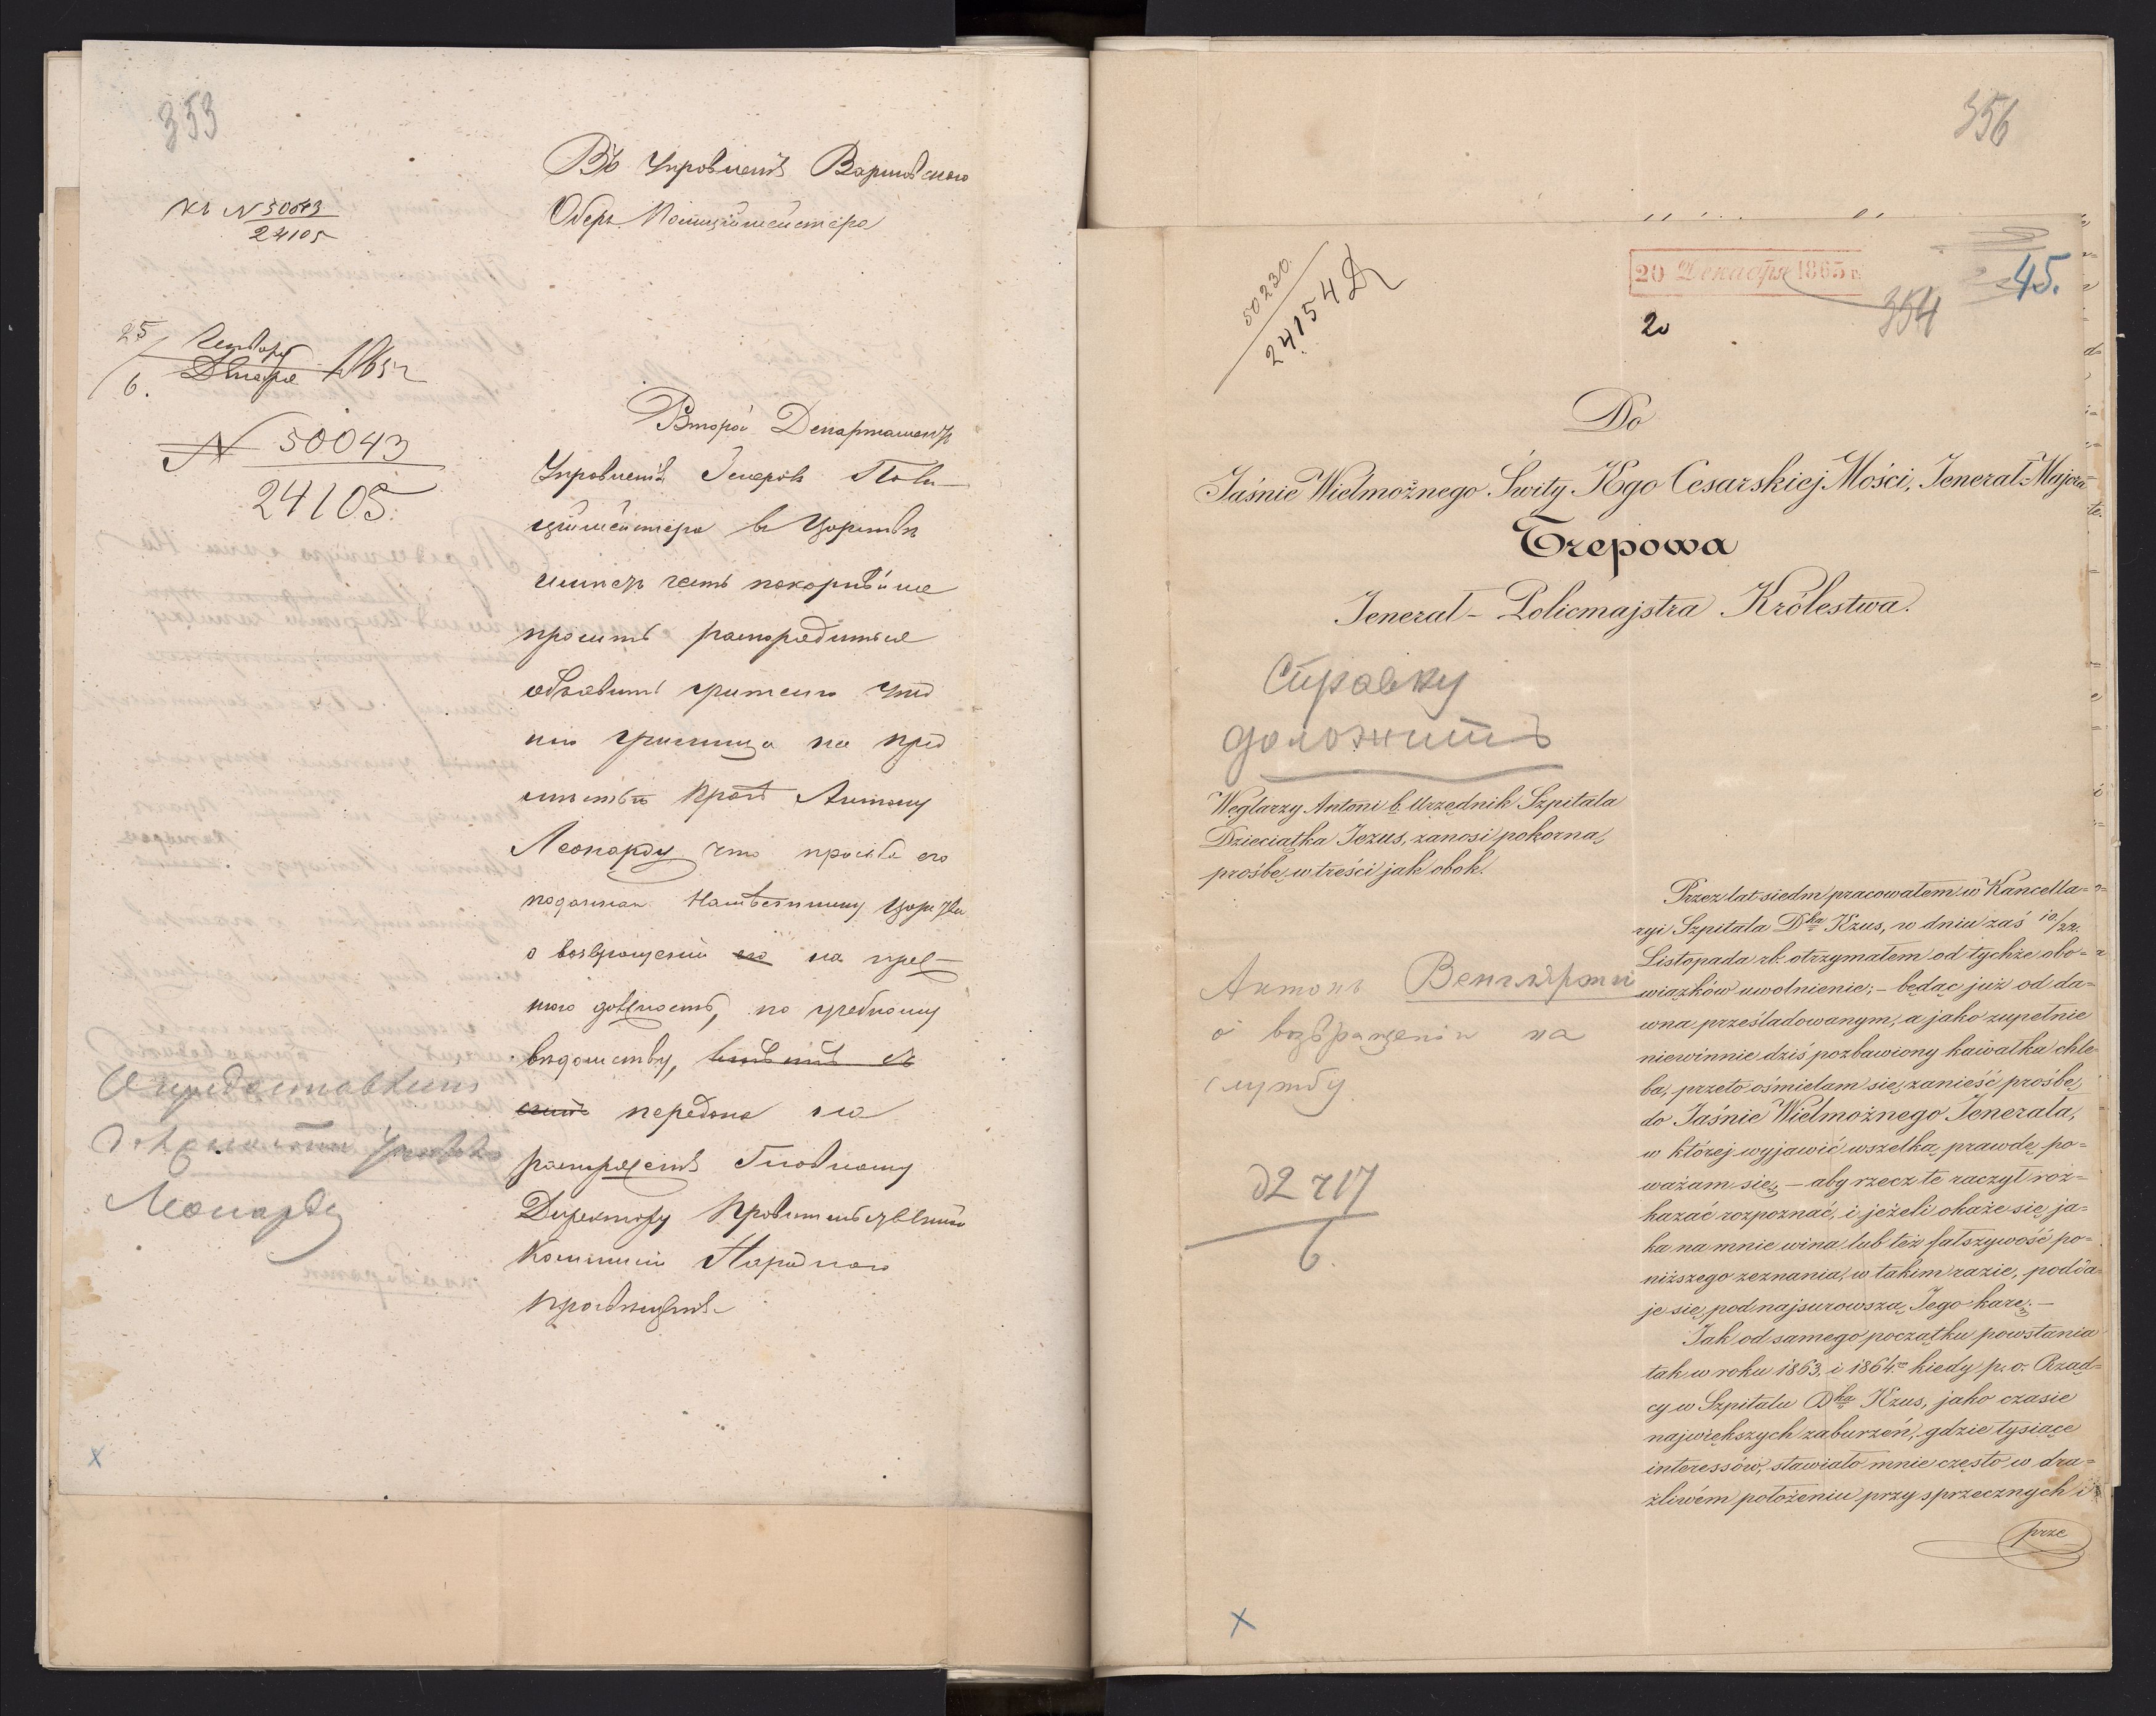 353
Въ Управленіе Варшавскаго
Оберъ Полицiймейстера
къ N 50043
24105
25
6.
Января
Декабря 1865 г
N 50043
24105
Второй Департаментъ
Управленія Генералъ Поли-
ціймейстера въ Царствѣ
имѣетъ честь покорнѣйше
просить распорядиться
объявить
на пред
мѣстьѣ Прагѣ Антону
Леонарду что просьба его
поданная Намѣстнику Царства
о возвращеніи его на преж-
нюю должность, по учебному
вѣдомству,
передана на
распоряженіе Главному
Директору Правительственной
Коммисіи Народнаго
Просвѣщенія
Леонарда
356
50230
24154 Д
20 Декабря 1865 г.
20
354
45.
Do
Jaśnie Wielmożnego Świty JEgo Cesarskiej Mości, Jenerał-Majora
Trepowa
Jenerał-Policmajstra Królestwa.
Справку
доложить
Węglarzy Antoni b. Urzędnik Szpitala
Dzieciątka Jezus, zanosi pokorną
prośbę w treści jak obok.
Антонъ Венгляржи
о возвращеніи на
службу
д2 717
6.
Przez lat siedm pracowałem w Kancella=
ryi Szpitala Dka JEzus, w dniu zaś 10/22.
Listopada rb. otrzymałem od tychże obo=
wiązków uwolnienie;- będąc już od da=
wna prześladowanym, a jako zupełnie
niewinnie dziś pozbawiony kawałka chle=
ba, przeto ośmielam się, zanieść prośbę
do Jaśnie Wielmożnego Jenerała,
w której wyjawić wszelką prawdę po=
ważam się, - aby rzecz te raczył roz=
kazać rozpoznać, i jeżeli okaże się ja=
ka na mnie wina, lub też fałszywość po=
niższego zeznania, w takim razie, podda=
je się, pod najsurowszą Jego karę; -
Jak od samego początku powstania
tak w roku 1863, i 1864.m kiedy p. o. Rząd=
cy w Szpitalu Dka JEzus, jako czasie
największych zaburzeń, gdzie tysiące
interessów, stawiało mnie często w dra=
żliwém położeniu przy sprzecznych i
prze